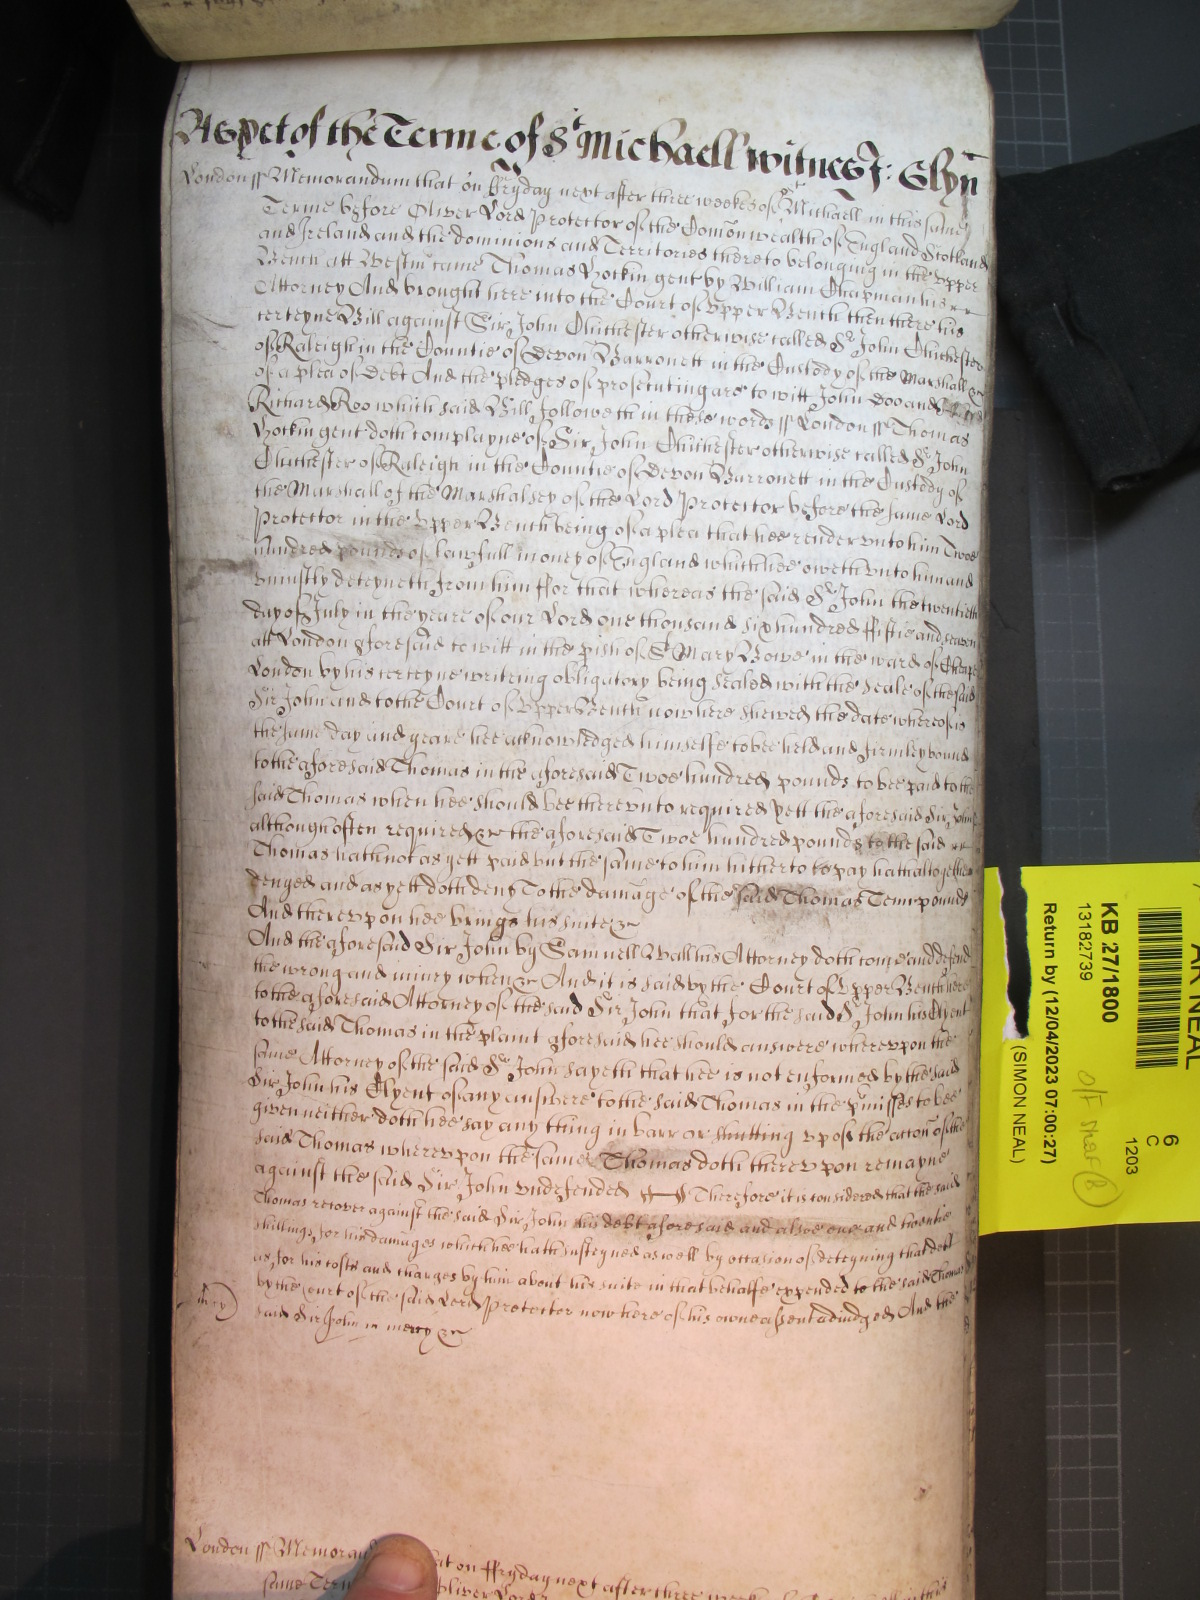 As yet of the Terme of St Michaell witnes J: Glyn
London ss Memorandum that on ffryday next after three weekes of St Michaell in this same
Terme before Oliver Lord Protector of the Comon wealth of England Scotland
and Ireland and the dominions and Territories thereto belonging in the vpper
Bench att Westm came Thomas Hockin gent by William Chapman his
Attorney And brought here into the Court of Vpper Bench then there his
certeyne Bill against Sir John Chichester otherwise called Sr John Chichester
of Raleigh in the Countie of Devon Barronett in the Custody of the Marshall &c
of a plea of Debt And the pledges of prosecuting are to witt John Doo and
Richard Roo which said Bill followeth in these words ss London ss Thomas
Hockin gent doth complayne of Sir John Chichester otherwise called Sr John
Chichester of Raleigh in the Countie of Devon Barronett in the Custody of
the Marshall of the Marshalsey of the Lord Protector before the same Lord
Protector in the vpper Bench being of a plea that hee render vnto him Twoe
hundred pounds of lawfull money of England which hee oweth vnto him and
vniustly deteyneth from him ffor that whereas the said Sr John the twentieth
day of July in the yeare of our Lord one thousand six hundred ffiftie and seaven
att London aforesaid to witt in the pish of St Mary Bowe in the ward of Cheape
London by his certeyne writeing obligatory being sealed with the seale of the said
Sir John and to the Court of Vpper Bench now here shewed the date whereof is
the same day and yeare hee acknowledged himselfe to bee held and firmley bound
to the aforesaid Thomas in the aforesaid Twoe hundred pounds to bee paid to the
said Thomas when hee should bee therevnto required yett the aforesaid Sir John
although often required &c the aforesaid Twoe hundred pounds to the said
Thomas hath not as yett paid but the same to him hitherto to pay hath altogether
denyed and as yett doth deny To the damage of the said Thomas Tenn pounds
And therevpon hee brings his suite &c
And the aforesaid Sir John by Samuell Wall his Attorney doth come and defend
the wrong and iniury when &c And it is said by the Court of Vpper Bench here
to the aforesaid Attorney of the said Sir John that for the said Sr John his Clyent
to the said Thomas in the plaint aforesaid hee should answere wherevpon the
same Attorney of the said Sr John sayeth that hee is not enformed by the said
Sir John his Clyent of any answere to the said Thomas in the pmisses to bee
given neither doth hee say any thing in barr or shutting vp of the accon of the
said Thomas wherevpon the same Thomas doth therevpon remayne
against the said Sir John vndefended Therefore it is considered that the said
Thomas recover against the said Sir John his debt aforesaid and alsoe one and twentie
shillings for his damages which hee hath susteyned as well by occasion of deteyning that debt
as for his costs and charges by him about his suite in that behalfe expended to the said Thomas
by the Court of the said Lord Protector now here of his owne assent adiudged And the
said Sir John in mercy &c
mcy
London ss Memorand at on ffryday next after three
same Term Oliver Lord
KB 27/1800
13182739
Return by (12/04/2023 07:00:27)
(SIMON NEAL)
6
C
1203